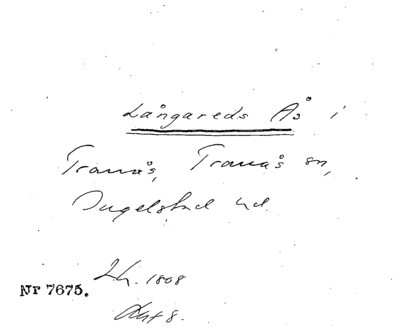 Långareds Ås i
Tranås, Tranås sn,
Ingelstad hd.
Lh. 1808
Nr 7675.